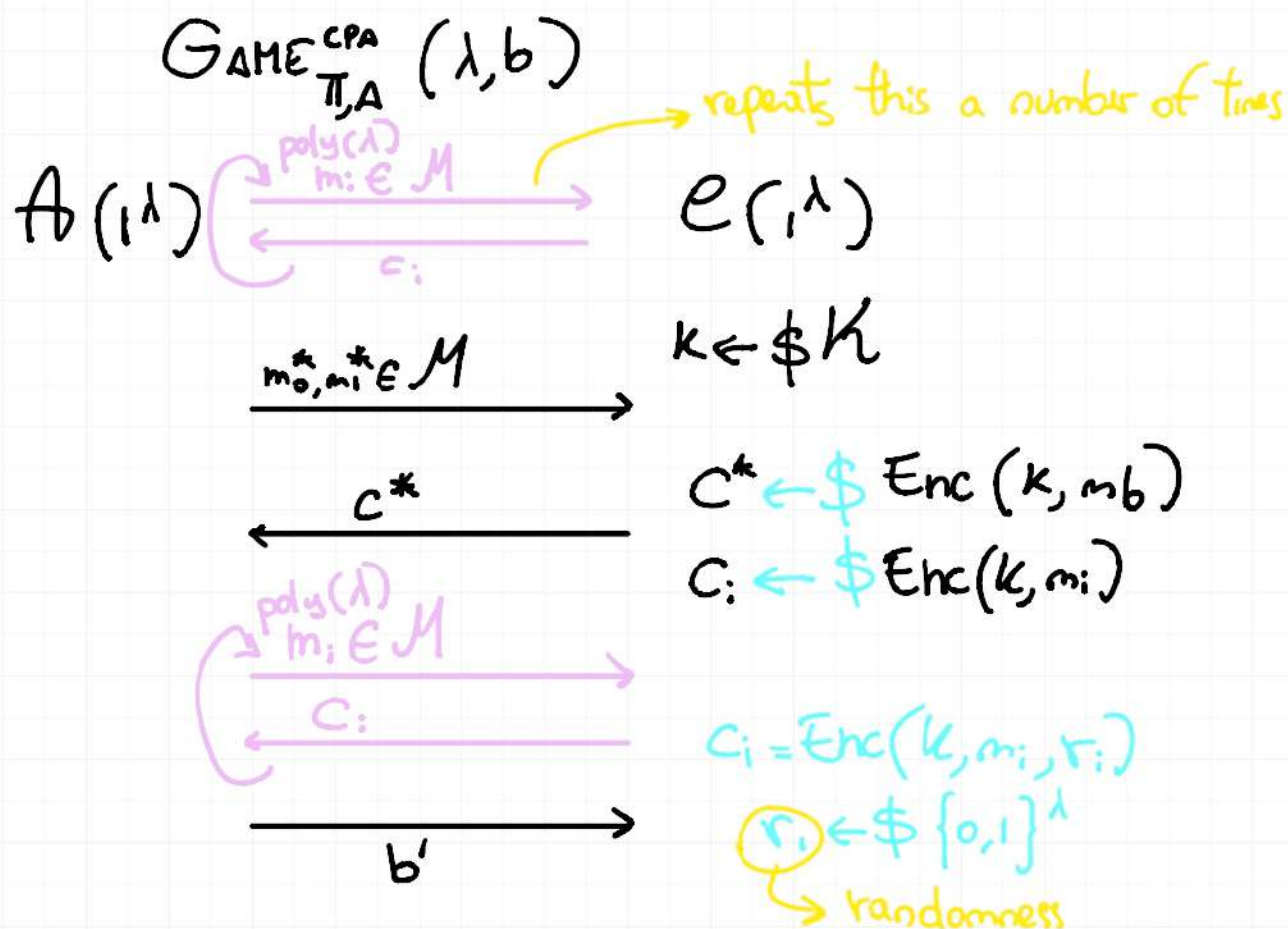 GAME^{CPA}_{Π,A} (λ,b)
repeats this a number of times
poly(λ)
m_i ∈ M
A(1^λ)
C(1^λ)
c_i
k ←$ K
m_0^*, m_1^* ∈ M
c^*
C^* ←$ Enc(k, mb)
C_i ←$ Enc(k, m_i)
poly(λ)
m_i ∈ M
C_i
C_i = Enc(k, m_i, r_i)
b'
r_i ←$ {0,1}^λ
randomness